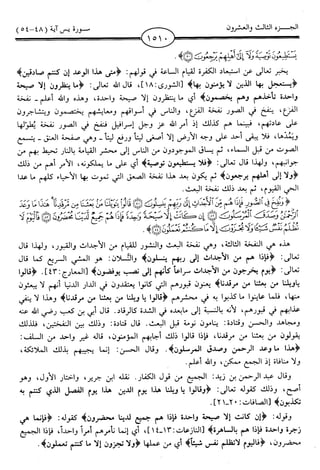 الجـــزء الثالث والعشرون
١٥١٠
سـورة يـس آية (٤٨-٥٤)
يخبر تعالى عن استبعاد الكفرة لقيام الساعة في قولهم: ﴿متى هذا الوعد إن كنتم صادقين﴾
﴿يستعجل بها الذين لا يؤمنون بها﴾ [الشورى:١٨]، قال الله تعالى: ﴿ما ينظرون إلا صيحة
واحدة تأخذهم وهم يخصمون﴾ أي ما ينتظرون إلا صيحة واحدة، وهذه والله أعلم - نفخة
الفزع، ينفخ في الصور نفخة الفزع، والناس في أسواقهم ومعايشهم يختصمون ويتشاجرون
على عادتهم، فبينما هم كذلك إذ أمر الله عز وجل إسرافيل فنفخ في الصور نفخة يُطولها
ويمُدها، فلا يبقى أحد على وجه الأرض إلا أصغى ليتاً ورفع ليتاً - وهي صفحة العنق - يتسمع
الصوت من قبل السماء، ثم يساق الموجودون من الناس إلى محشر القيامة بالنار تحيط بهم من
جوانبهم، ولهذا قال تعالى: ﴿فلا يستطيعون توصية﴾ أي على ما يملكونه، الأمر أهم من ذلك
﴿ولا إلى أهلهم يرجعون﴾ ثم يكون بعد هذا نفخة الصعق التي تموت بها الأحياء كلهم ما عدا
الحي القيوم، ثم بعد ذلك نفخة البعث.
هذه هي النفخة الثالثة، وهي نفخة البعث والنشور للقيام من الأجداث والقبور، ولهذا قال
تعالى: ﴿فإذا هم من الأجداث إلى ربهم ينسلون﴾ والنَّسلان: هو المشي السريع كما قال
تعالى: ﴿يوم يخرجون من الأجداث سراعاً كأنهم إلى نصب يوفضون﴾ [المعارج:٤٣]. ﴿قالوا
ياويلنا من بعثنا من مرقدنا﴾ يعنون قبورهم التي كانوا يعتقدون في الدار الدنيا أنهم لا يبعثون
منها، فلما عاينوا ما كذبوا به في محشرهم ﴿قالوا يا ويلنا من بعثنا من مرقدنا﴾ وهذا لا ينفي
عذابهم في قبورهم، لأنه بالنسبة إلى مابعده في الشدة كالرقاد. قال أبي بن كعب رضي الله عنه
ومجاهد والحسن وقتادة: ينامون نومة قبل البعث. قال قتادة: وذلك بين النفختين، فلذلك
يقولون من بعثنا من مرقدنا، فإذا قالوا ذلك أجابهم المؤمنون، قاله غير واحد من السلف:
﴿هذا ما وعد الرحمن وصدق المرسلون﴾. وقال الحسن: إنما يجيبهم بذلك الملائكة،
ولا منافاة إذ الجمع ممكن، والله أعلم.
وقال عبد الرحمن بن زيد: الجميع من قول الكفار. نقله ابن جرير، واختار الأول، وهو
أصح، وذلك كقوله تعالى: ﴿وقالوا يا ويلنا هذا يوم الدين هذا يوم الفصل الذي كنتم به
تكذبون﴾ [الصافات:٢٠-٢١].
وقوله: ﴿إن كانت إلا صيحة واحدة فإذا هم جميع لدينا محضرون﴾ كقوله: ﴿فإنما هي
زجرة واحدة فإذا هم بالساهرة﴾ [النازعات:١٣-١٤]، أي إنما نأمرهم أمراً واحداً، فإذا الجميع
محضرون، ﴿فاليوم لاتظلم نفس شيئاً﴾ أي من عملها ﴿ولا تجزون إلا ما كنتم تعملون﴾.